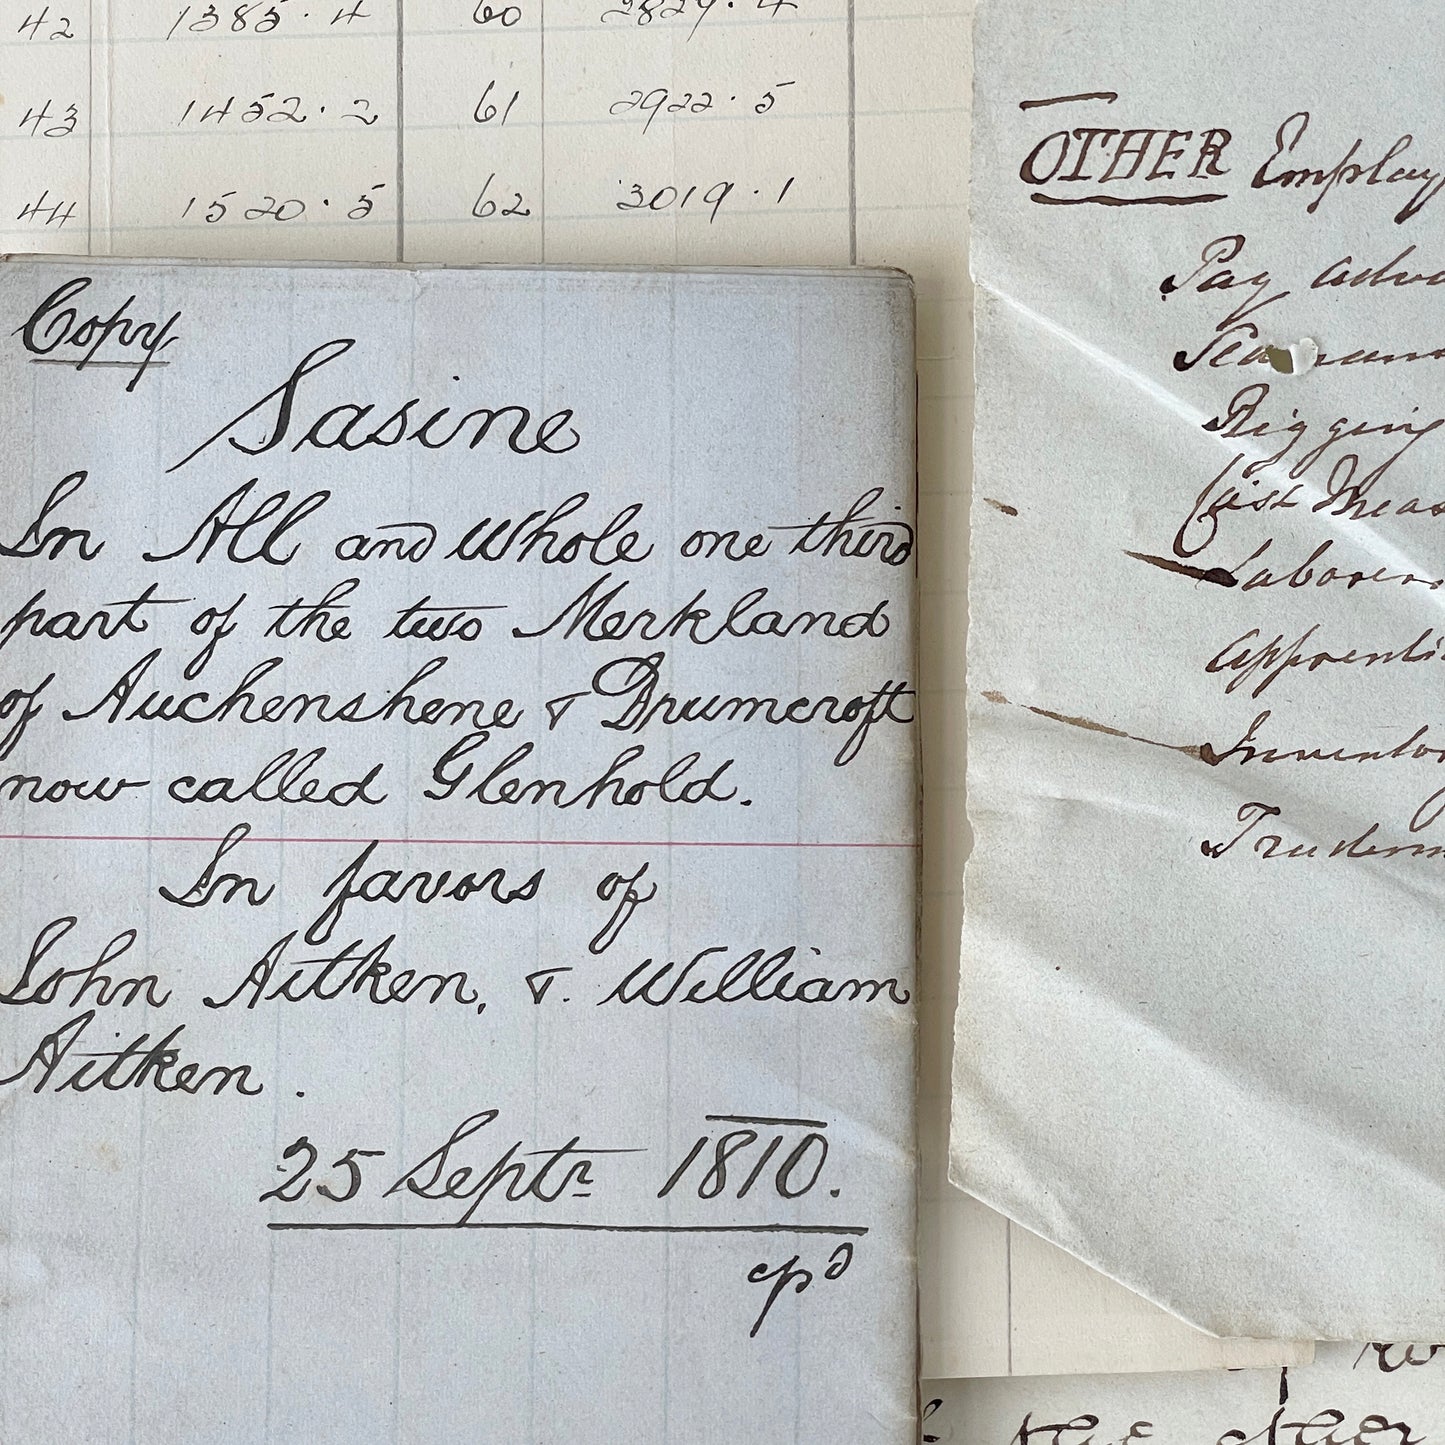 42 1385·4 60 2829·4
43 1452·2 61 2922·5
44 1520·5 62 3019·1
Copy
Sasine
In All and Whole one third
part of the two Merkland
of Auchenshene & Drumcroft
now called Glenhold.
In favors of
John Aitken, &. William
Aitken.
25 Septr 1810.
cpd
OTHER Employ
Pay adva
Rigging
Laborers
Apprenti
Inventor
the other